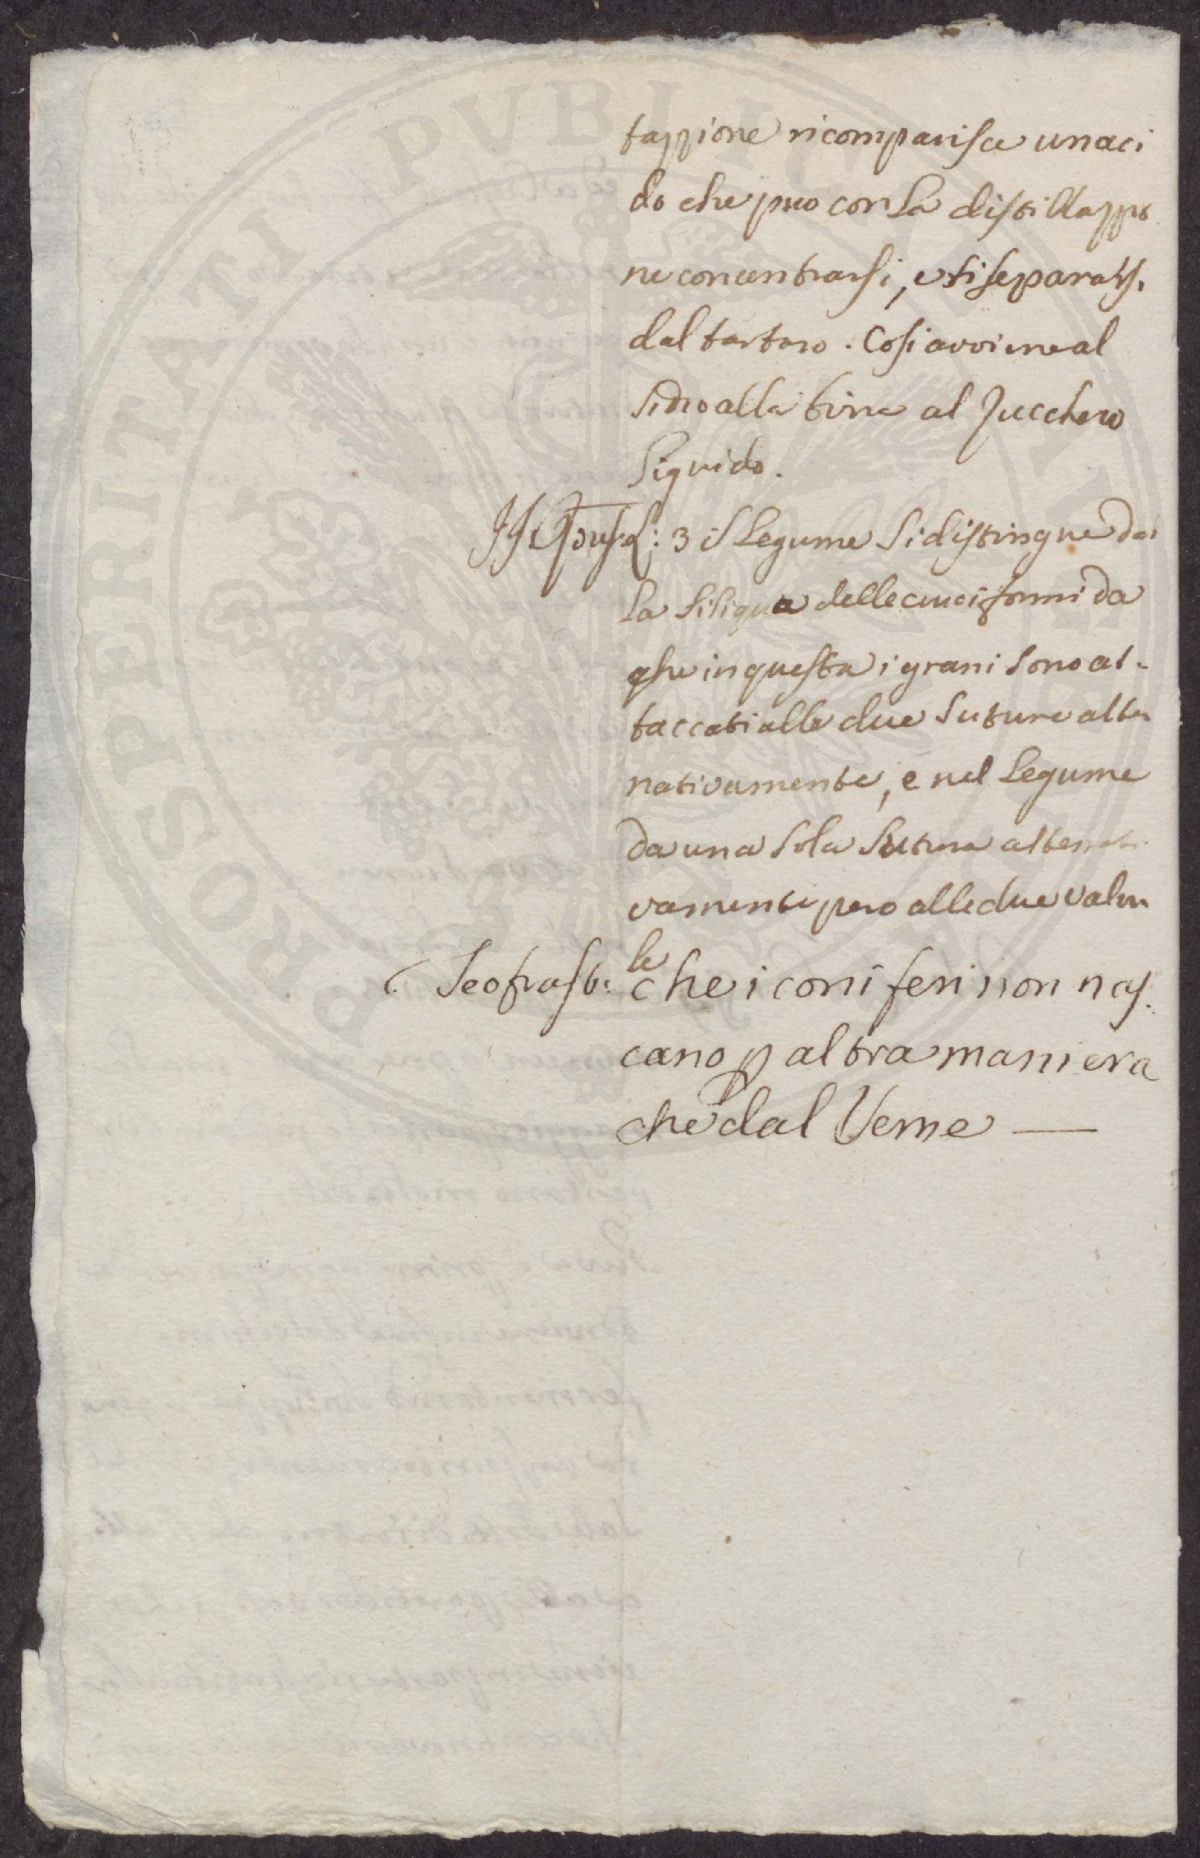 tazzione ricomparisce un aci
do che puo con la distillazzio
ne concentrarsi, e si separa
dal tartaro. Cosi avviene al
sidro alla birra al zucchero
liquido.
3 il legume si distingue dal
la siliqua delle cruciformi da
che in questa i grani sono at-
taccati alle due suture alter
nativamente, e nel legume
da una sola sutura alternati
vamente pero alle due valvu
le
Teofrast: che i coniferi non nas
cano p altra maniera
che dal Seme —
PROSPERITATI PVBLICAE